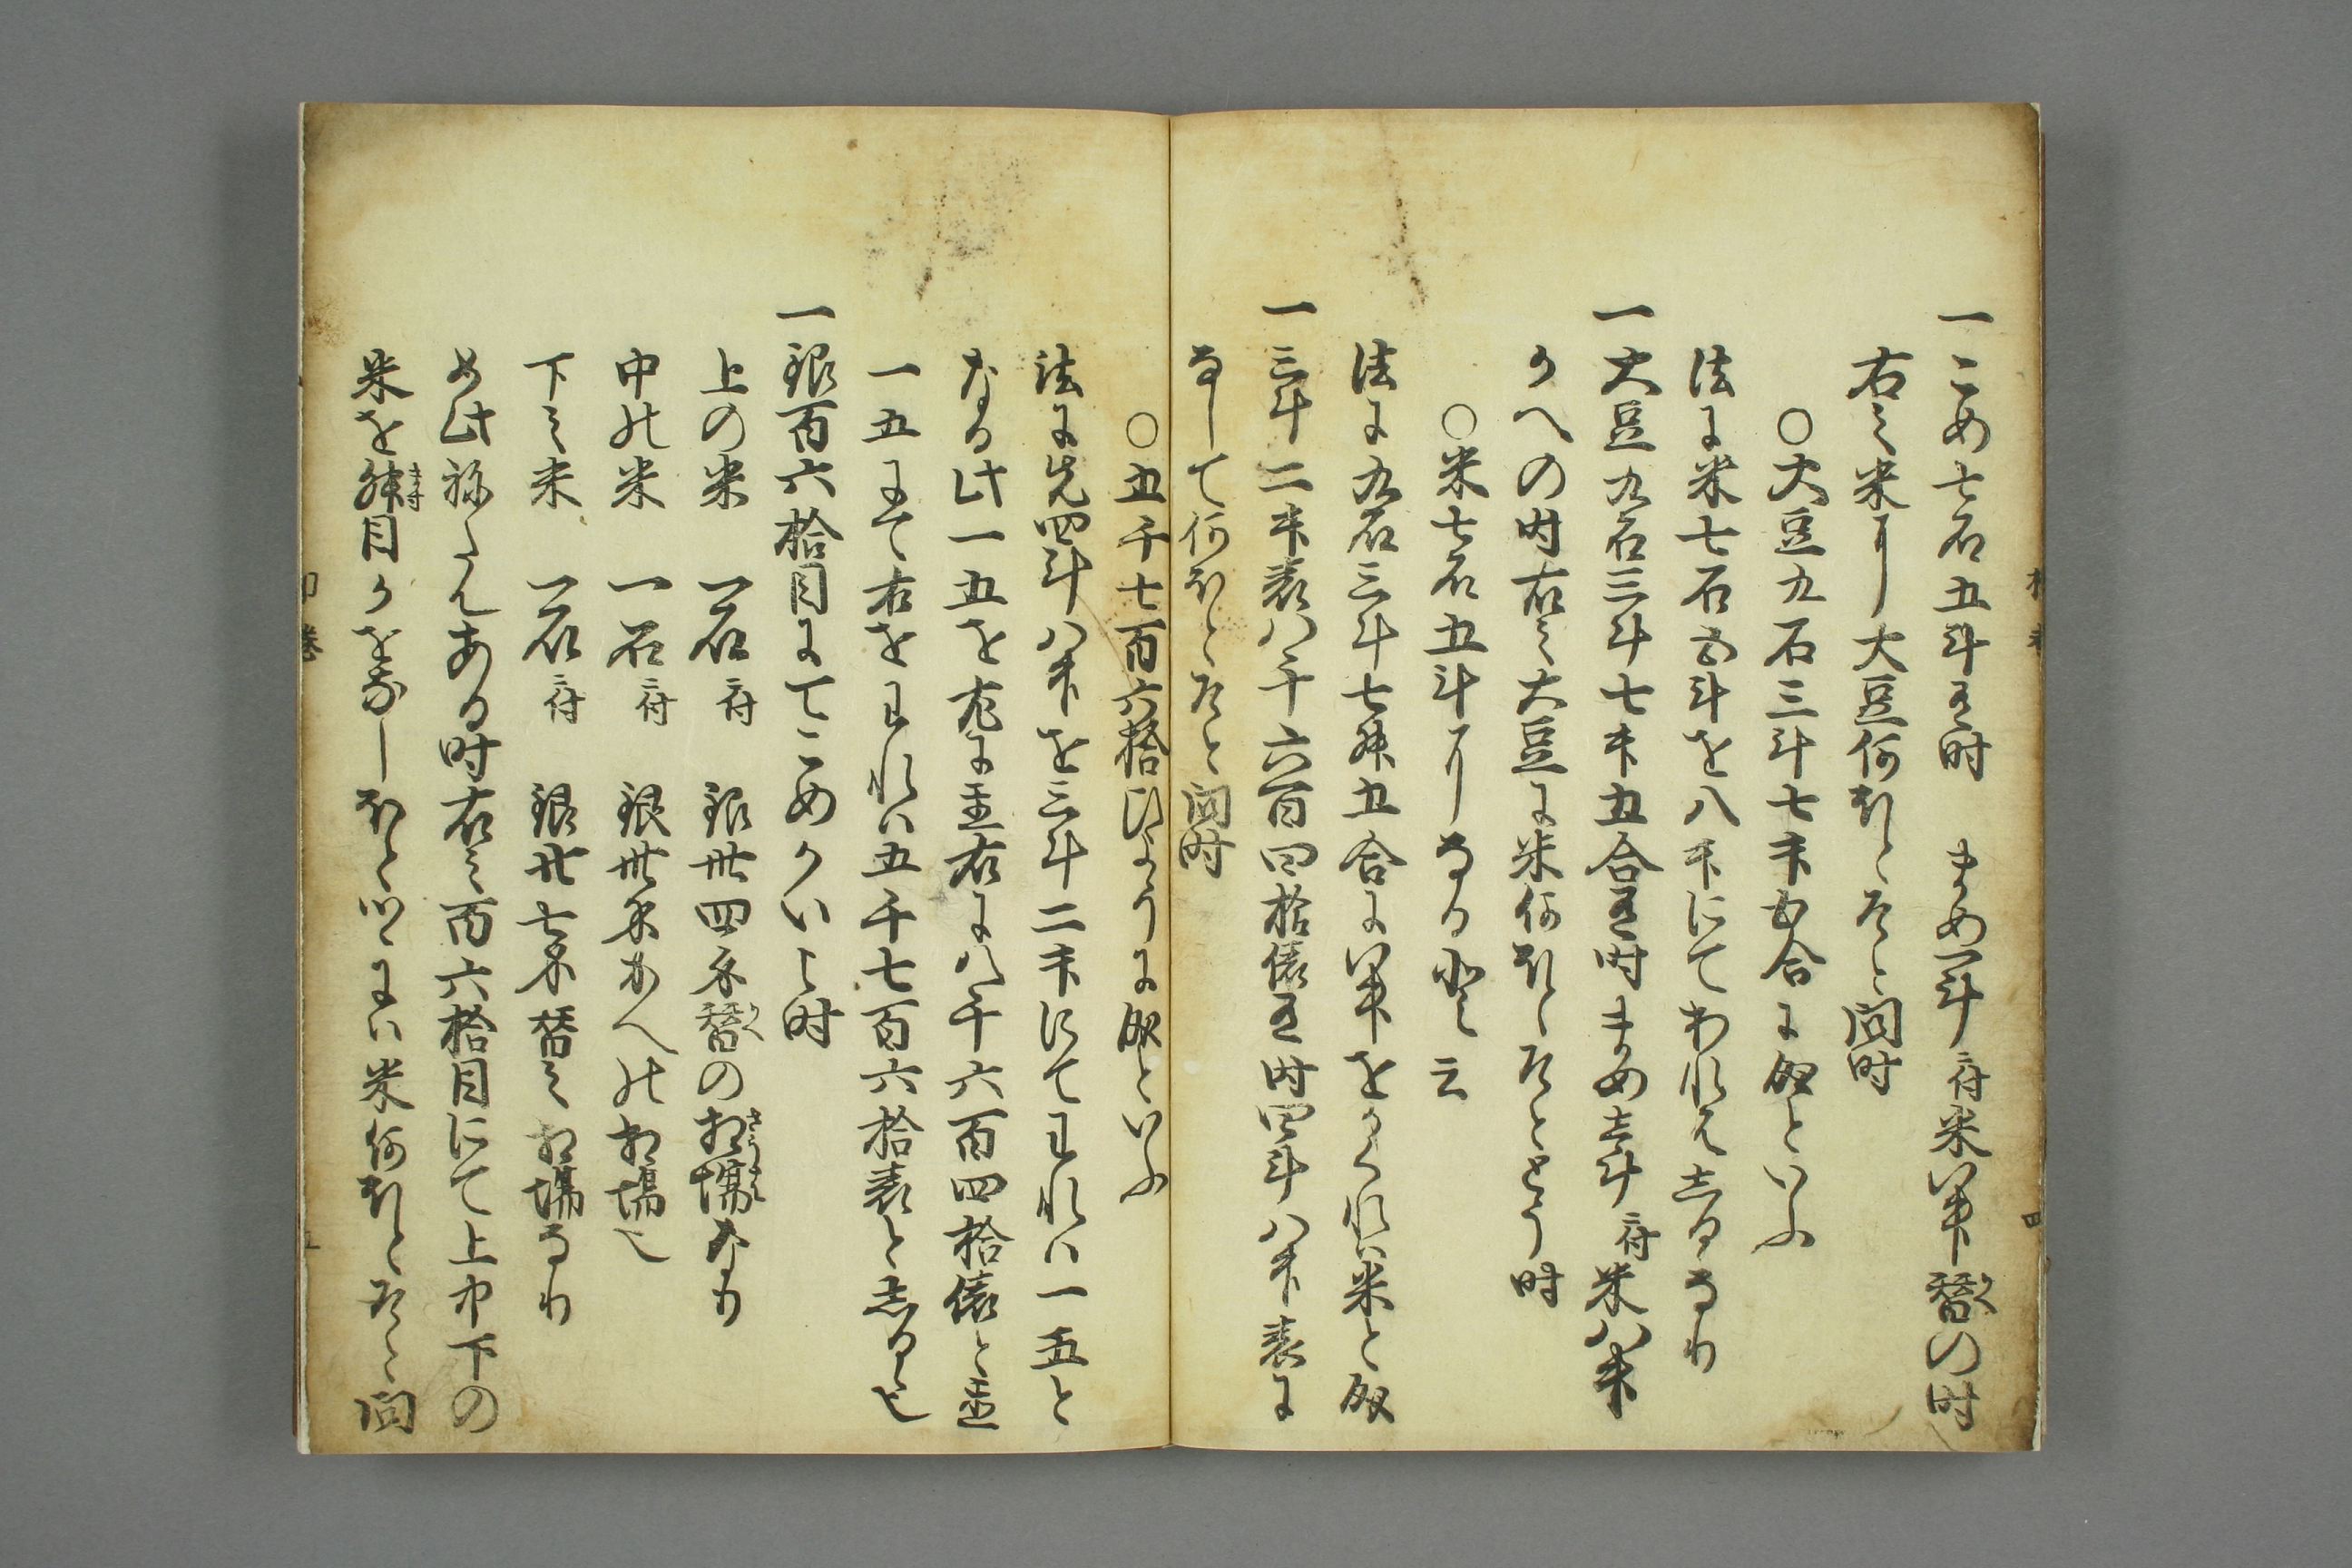 一こめ七石五斗有時　まめ一斗ニ付米八升替の時
右之米ニ大豆何ほとそと問時
〇大豆九石三斗七升五合に成といふ
法に米七石五斗を八升にてわれはしるゝなり
一大豆九石三斗七升五合有時まめ壱斗ニ付米八升
かへの時右之大豆に米何ほとそととう時
〇米七石五斗になる也と云
法に九石三斗七升五合に八升をかくれは米と成
一三斗二升表八千六百四拾俵有時四斗八升表に
なして何ほとそと問時
〇五千七百六拾ひやうに成といふ
法に先四斗八升を三斗二升にてわれは一五と
なる此一五を左に置右に八千六百四拾俵と置
一五にて右をわれは五千七百六拾表としるゝ也
一銀百六拾目にてこめかいに時
上の米　一石ニ付　銀卅四匁替の相場なり
中の米　一石ニ付　銀卅匁かへの相場也
下之米　一石ニ付　銀廿七匁替之相場なり
右之百六拾目にて上中下の
米を　目かをなしほとつゝには米何ほとそと問
四